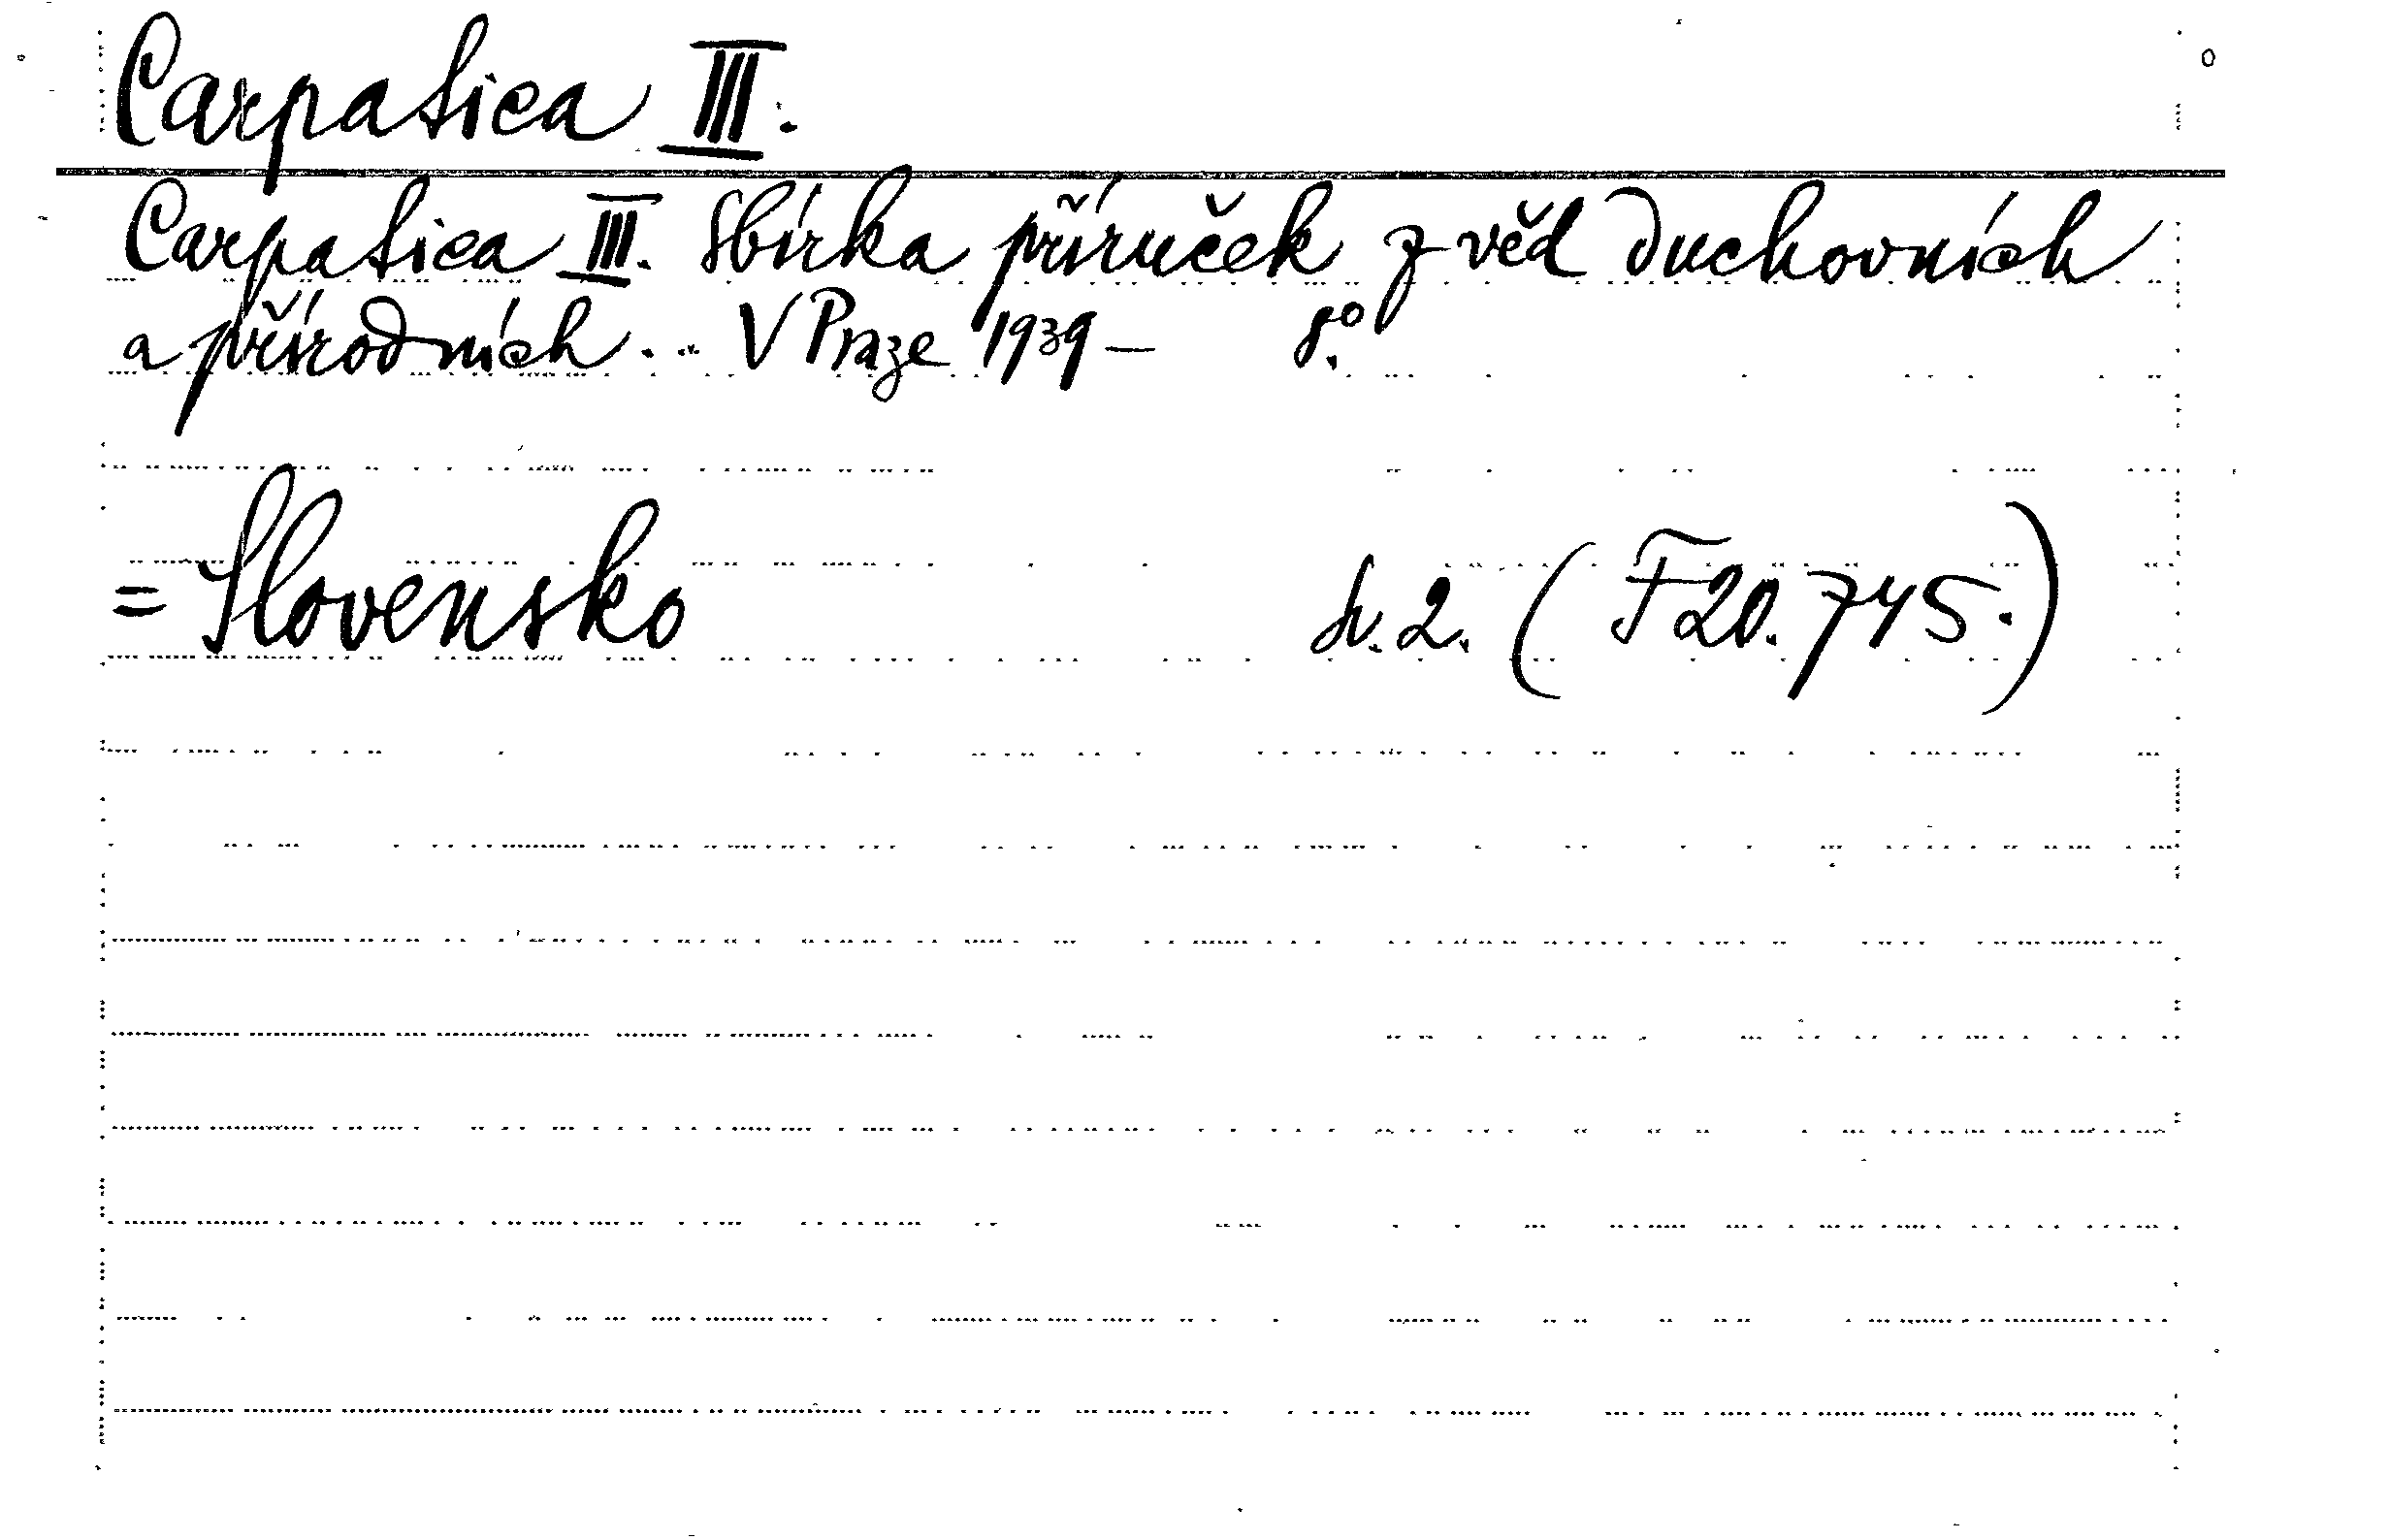 Carpatica III.
Carpatica III. Sbírka příruček z věd duchovních
a přírodních... V Praze 1939 – 8°.
= Slovensko sv. 2. (F 20.745.)